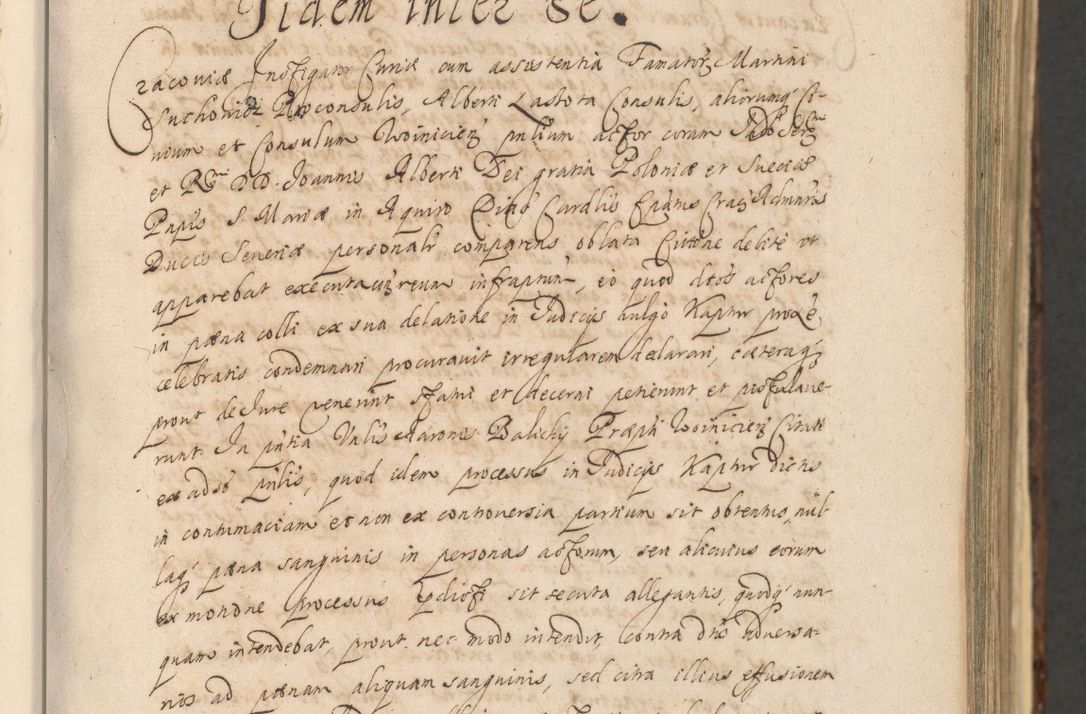 Iidem inter se.
Cracoviæ Instigator Curiæ cum assistentia Famator Martini
Suchonicz Proconsulis, Alberti Lastota Consulis, aliorumq Ci-
vium et Consulum Woinicien pntium actor coram
et Rmi D.D. Joannis Alberti Dei gratia Poloniæ et Sueciæ
Pnpis S. Mariæ in Aquiro Cardlis Epatus Crac Admnris
Ducis Severiæ personalr comparens oblata Citone debite ut
apparebat executa reum infraptum, eo quod dtos actores
in pæna colli ex sua delatione in Judicijs vulgo Kaptur
celebratis condemnari procuravit irregularem declarari, cæteraq
prout de Jure venerint statui et decerni petierunt et postulave-
runt In pntia Vnlis Aaronis Balichij Præpti Woinicien Citati
ex adso pntis, quod idem processus in Judicijs Kaptur dictis
in contumaciam et non ex controversia partium sit obtentus, nul-
laq pæna sanguinis in personas actorum, seu alicuius eorum
ex mondne Processus sit secuta allegantis, quodq nun-
quam intendebat, prout nec modo intendit, contra dtos adversa-
rios ad pænam aliquam sanguinis, sed citra illius effusionem